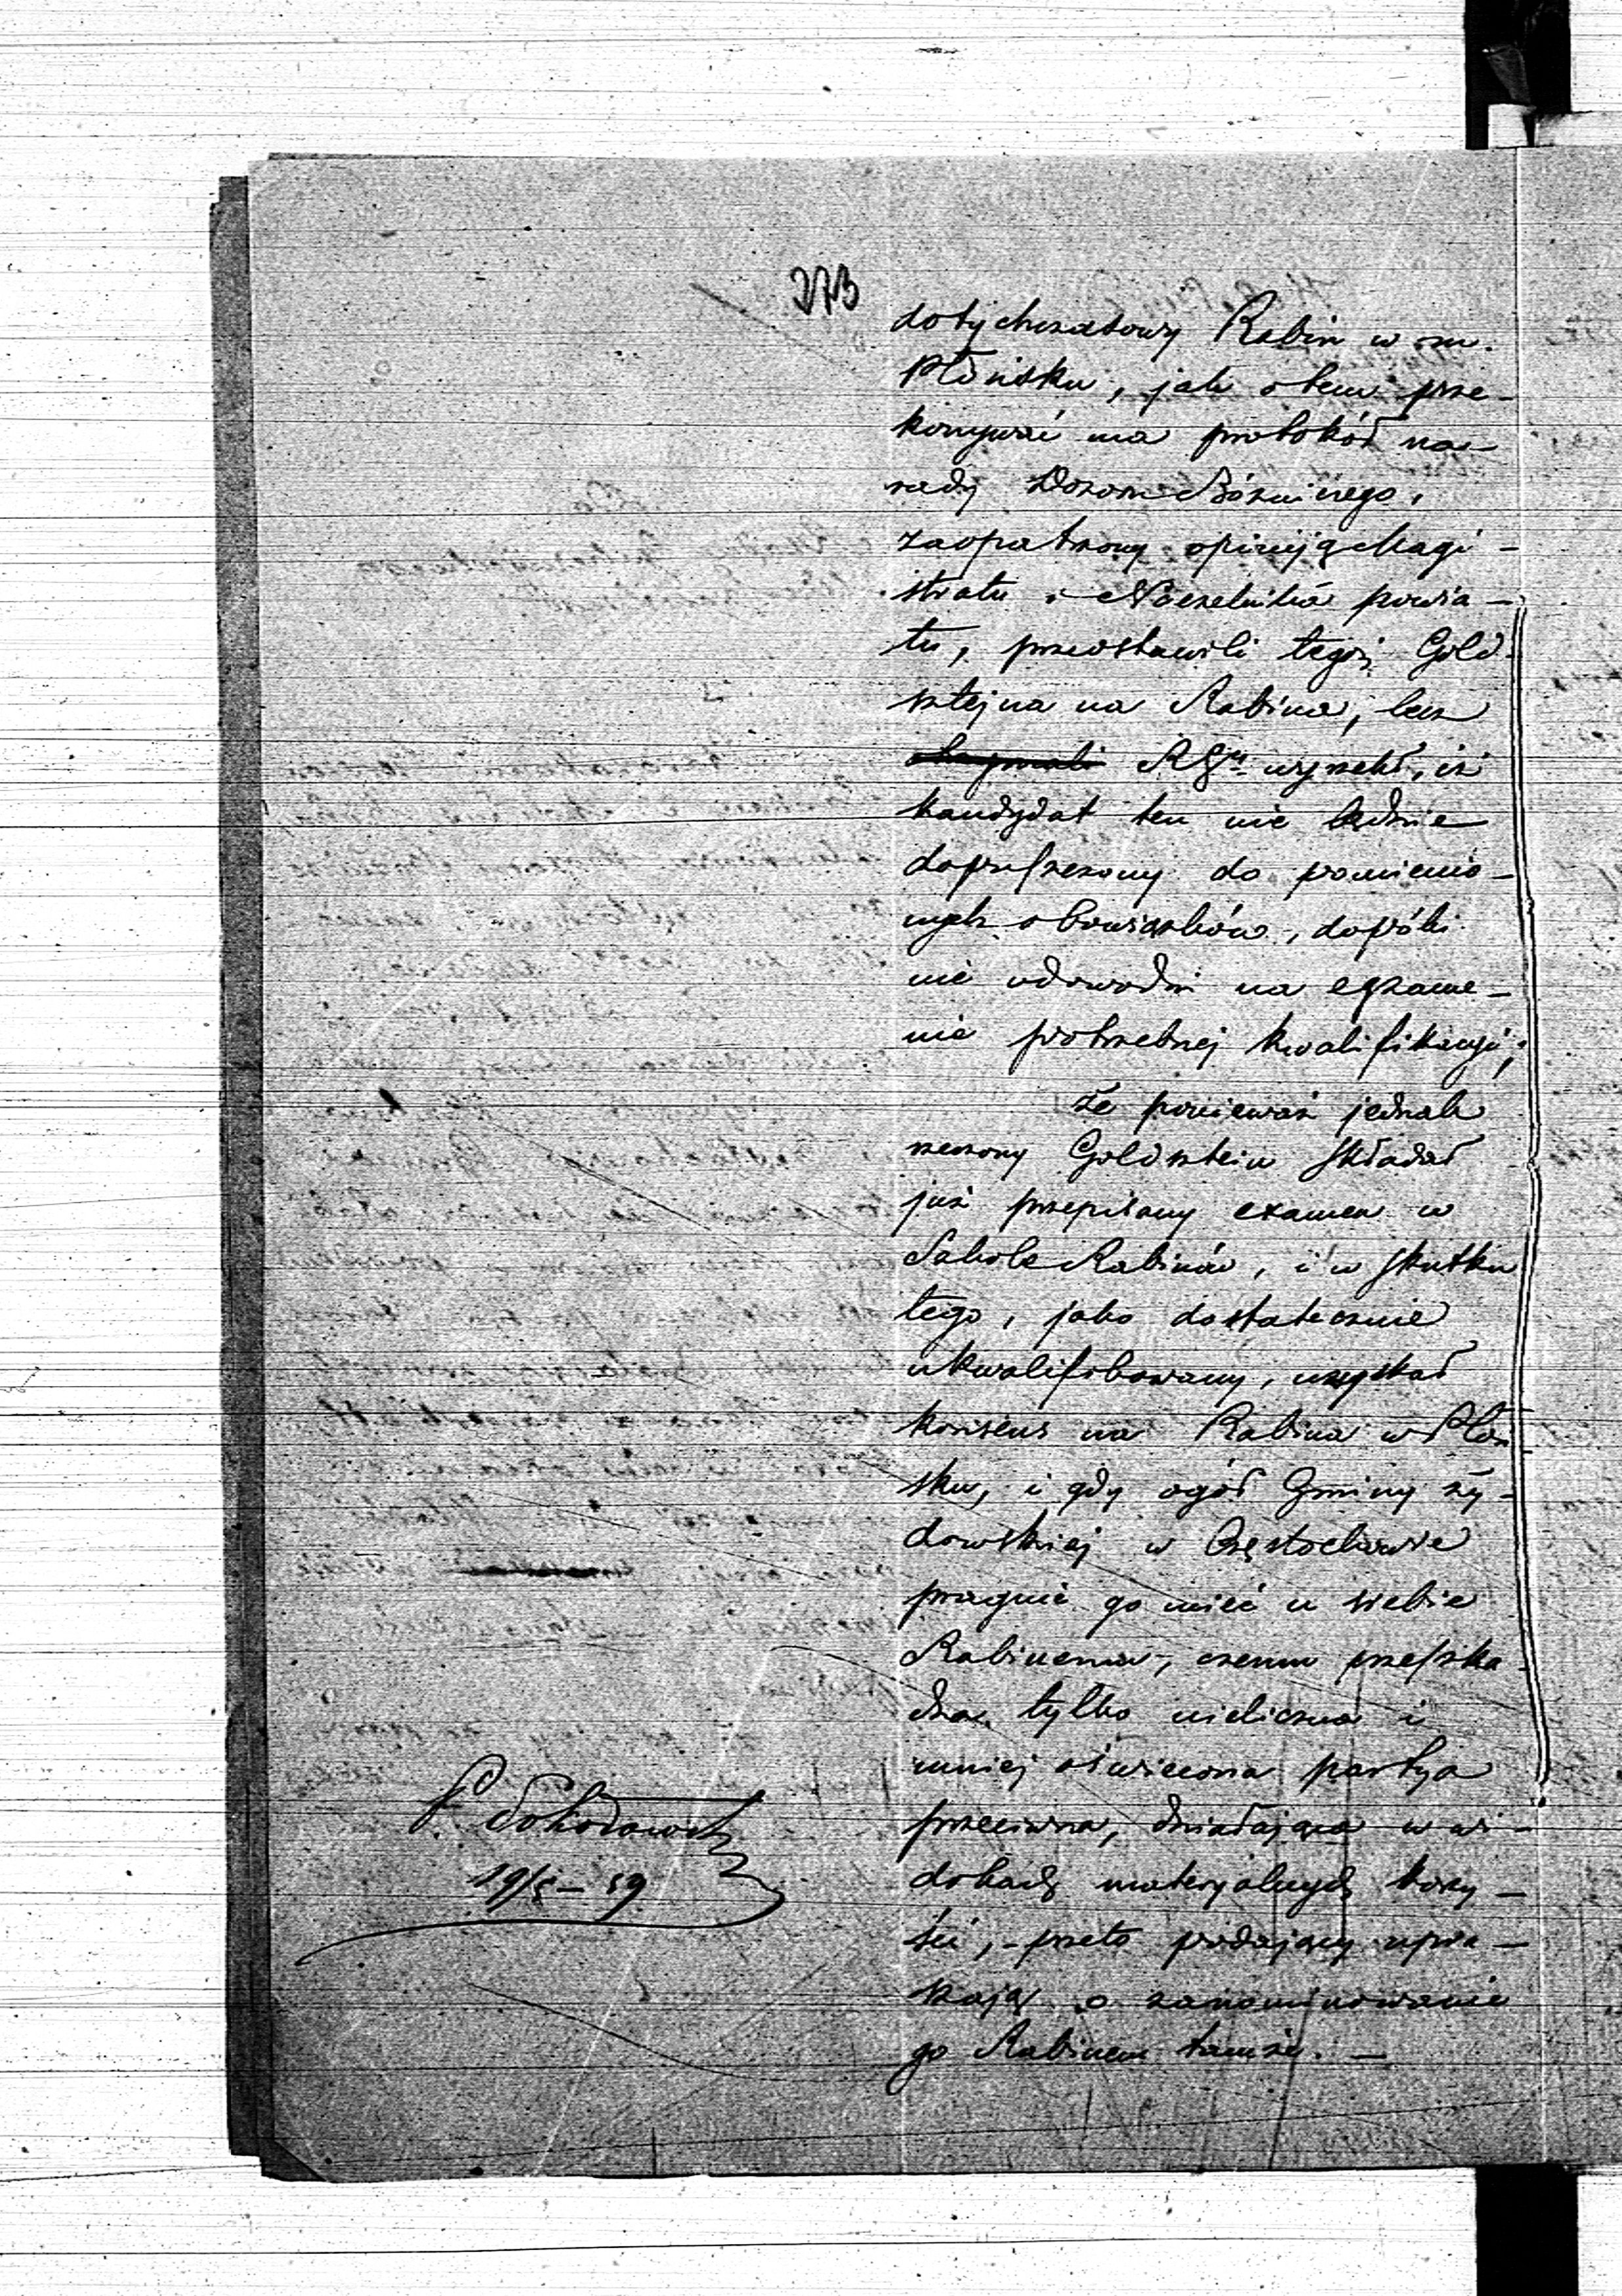 273
dotychczasowy Rabin w m.
Płońsku, jak o tem prze-
konywać ma protokół na-
rady Dozoru Bóżniczego,
zaopatrzony opiniją Magi-
stratu i Naczelnika powia-
tu, przedstawili tegoż Gold-
sztejna na Rabina, lecz
RGu. wyrzekł, iż
kandydat ten nie będzie
dopuszczony do pomienio-
nych obowiązków, dopóki
nie udowodni na egzame-
nie potrzebnej kwalifikacyi;
że ponieważ jednak
rzeczony Goldsztein składał
już przepisany examen w
Szkole Rabinów, i w skutku
tego, jako dostatecznie
ukwalifikowany, uzyskał
konsens na Rabina w Płoń-
sku, i gdy ogół Gminy ży-
dowskiej w Częstochowie
pragnie go mieć u siebie
Rabinem, czemu przeszka-
dza tylko nieliczna i
mniej oświecona partya
przeciwna, działająca w wi-
dokach materyalnych korzy-
ści, - przeto podający upra-
szają o zanominowanie
go Rabinem tamże. -
19/5 - 59